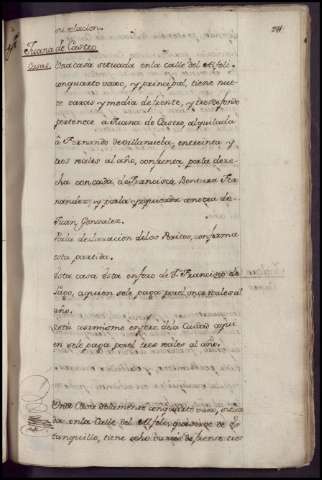 su relacion.
Juana de Castro
Casas
Una casa situada en la calle del Alfoli
con quarto vaxo, y principal, tiene nue
ve varas y media de frente, y tres de fondo
pertenece à Juana de Castro, alquilada
à Fernando de Villanueba, en treinta y
tres reales al año, confronta por la dere
cha con casa de Francisca Bentura Fer
nandez, y por la izquierda con otra de
Juan Gonzalez.
Por la declarazion de los Peritos, conforma
esta partida.
Esta casa esta en foro de Sn. Francisco de
Lugo, a quien se le paga por el once reales al
año.
Esta asimismo en foro de la Ciudad a qui
en se le paga por el tres reales al año.
Otra Casa de lo mismo con quarto vaxo, situa
da en la Calle del Alfoli, que sirve de
tanquillo, tiene ocho varas de frente